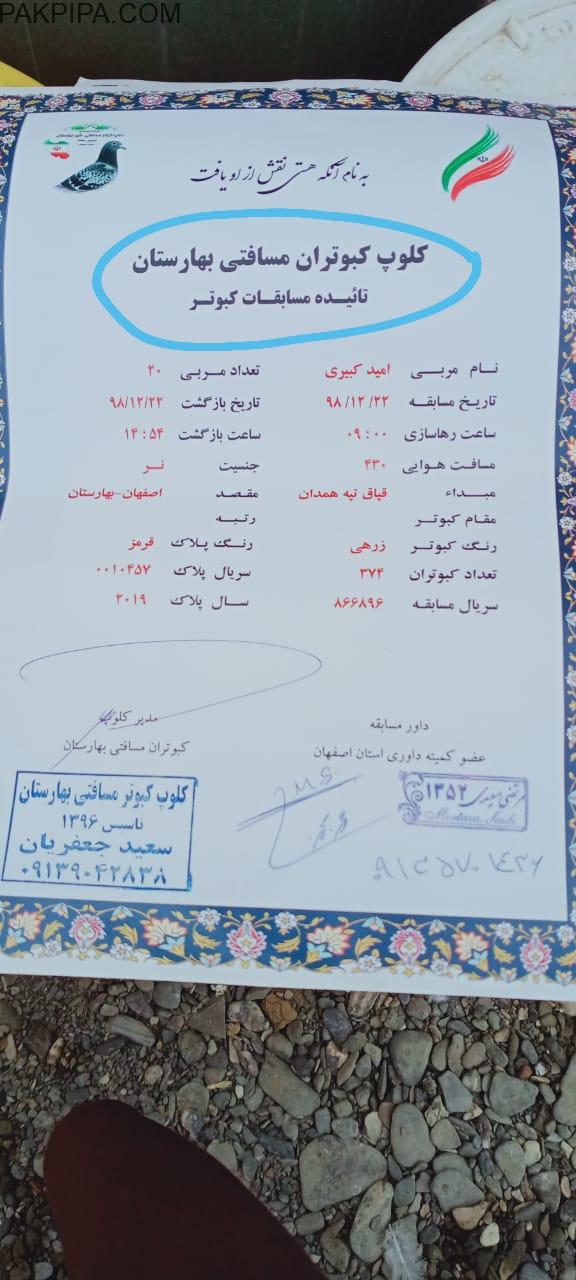 PAKPIPA.COM
به نام آنکه هستی نقش از او یافت
کلوپ کبوتران مسافتی بهارستان
تائیده مسابقات کبوتر
نام مربی امید کبیری تعداد مربی ۲۰
تاریخ مسابقه ۹۸/۱۲/۲۲ تاریخ بازگشت ۹۸/۱۲/۲۲
ساعت رهاسازی ۰۹:۰۰ ساعت بازگشت ۱۴:۵۴
مسافت هوایی ۴۳۰ جنسیت نر
مبداء قپاق تپه همدان مقصد اصفهان-بهارستان
مقام کبوتر رتبه
رنگ کبوتر زرهی رنگ پلاک قرمز
تعداد کبوتران ۳۷۴ سریال پلاک ۰۰۱۰۴۵۷
سریال مسابقه ۸۶۶۸۹۶ سال پلاک ۲۰۱۹
داور مسابقه مدیر کلوپ
عضو کمیته داوری استان اصفهان کبوتران مسافتی بهارستان
مرتضی سعیدی ۱۳۵۲
کلوپ کبوتر مسافتی بهارستان
تاسیس ۱۳۹۶
سعید جعفریان
۰۹۱۳۹۰۴۲۸۳۸